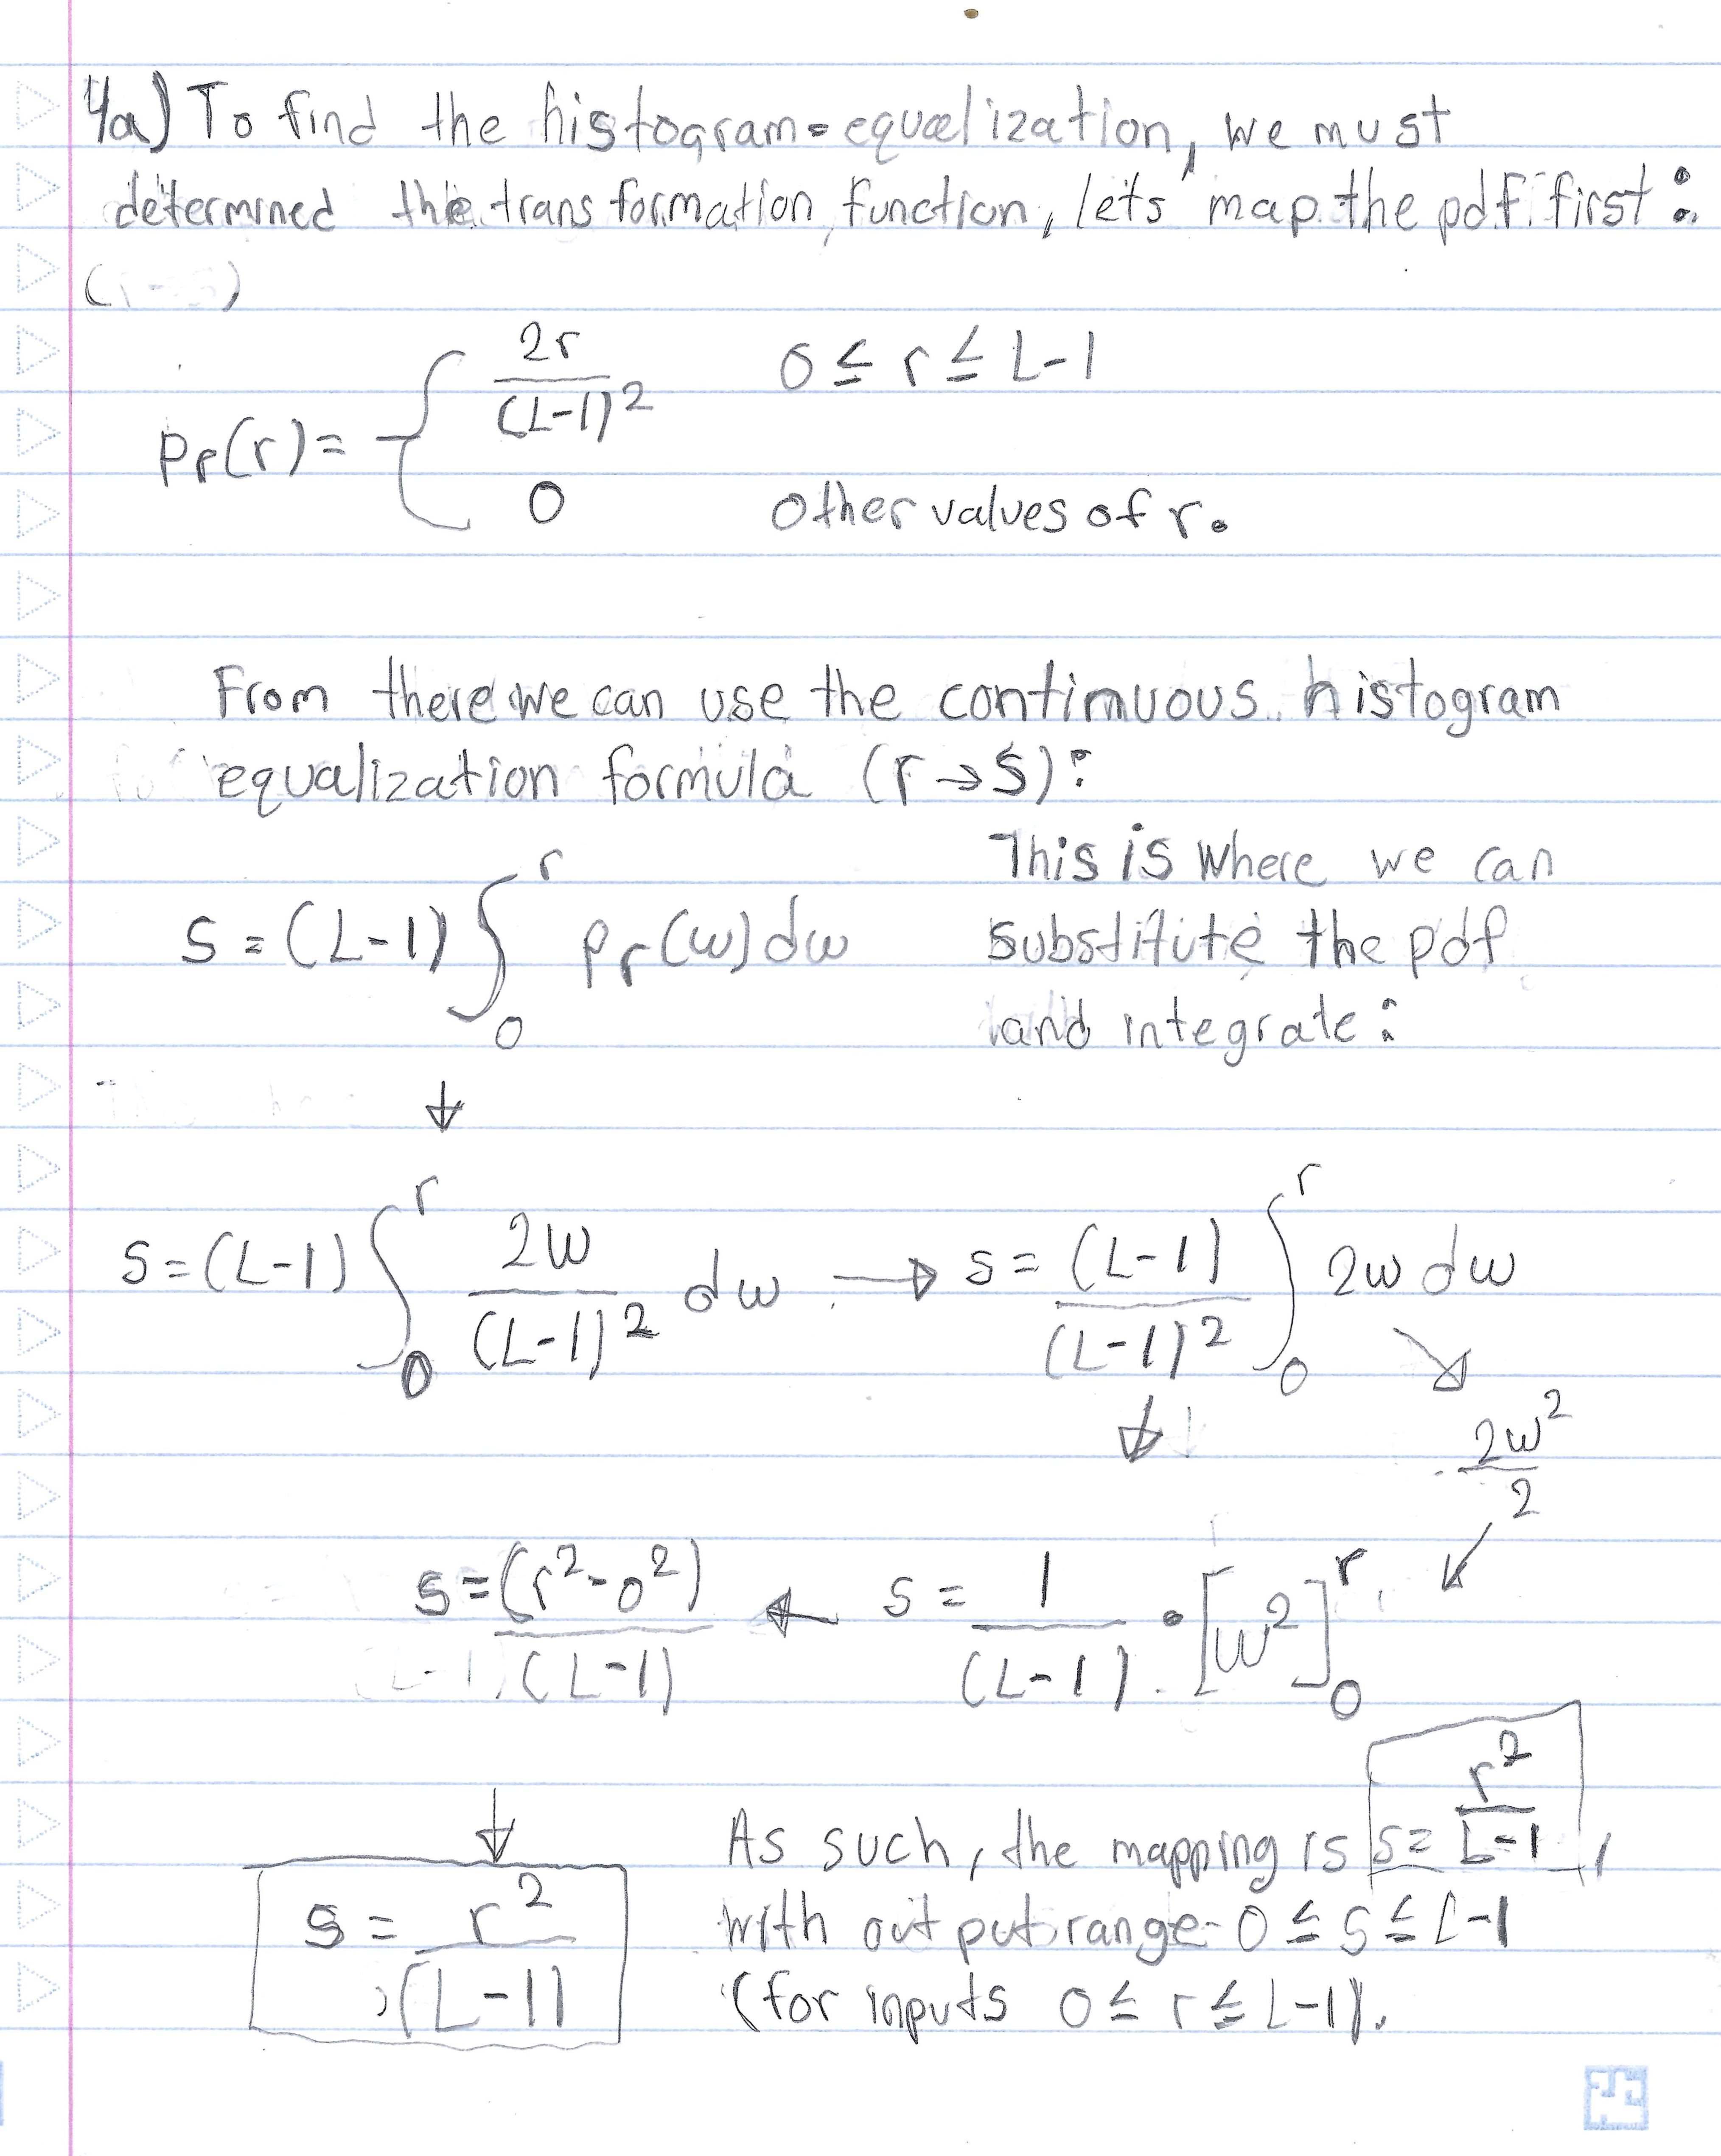 4a) To find the histogram-equalization, we must
determined the transformation function, lets map the pdf first:
p_r(r) = { 2r/(L-1)^2    0 ≤ r ≤ L-1
0    other values of r.
From there we can use the continuous histogram
equalization formula (r → s):
s = (L-1) ∫_0^r p_r(w) dw
This is where we can
substitute the pdf
and integrate:
↓
s = (L-1) ∫_0^r 2w/(L-1)^2 dw → s = (L-1)/(L-1)^2 ∫_0^r 2w dw
↓ ↘
2w^2/2
↙
s = (r^2-0^2)/(L-1) ← s = 1/(L-1) • [w^2]_0^r
↓
s = r^2/(L-1)
As such, the mapping is s = r^2/L-1,
with output range 0 ≤ s ≤ L-1
(for inputs 0 ≤ r ≤ L-1).